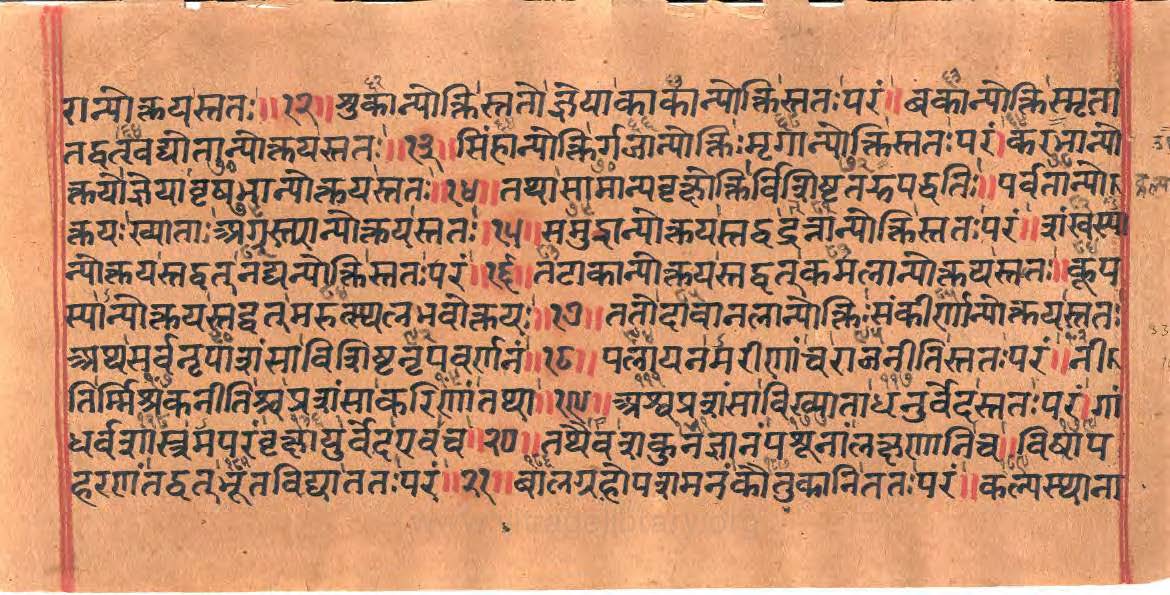 रान्योक्त्यस्ततः॥१२॥शुकान्योक्तिस्ततोज्ञेयाकाकान्योक्तिस्ततःपरं॥बकान्योक्तिस्मृता
तद्वत्खद्योतान्योक्त्यस्ततः॥१३॥सिंहान्योक्तिर्गजान्योक्तिःमृगान्योक्तिस्ततःपरं।करभान्यो
क्त्योज्ञेयावृषभान्योक्त्यस्ततः॥१४॥तथासामान्यवृक्षोक्तिर्विशिष्टतरुपद्धतिः॥पर्वतान्यो
क्त्यःख्याताःअगस्त्यान्योक्त्यस्ततः॥१५॥समुद्रान्योक्त्यस्तद्वद्रत्नान्योक्तिस्ततःपरं॥शंखस्या
न्योक्त्यस्तद्वत्नद्यन्योक्तिस्ततःपरं॥१६॥तटाकान्योक्त्यस्तद्वत्कमलान्योक्त्यस्ततः॥कूप
स्यान्योक्त्यस्तद्वत्मरुत्स्थलभवोक्त्यः॥१७॥ततोदावानलान्योक्तिःसंकीर्णान्योक्त्यस्ततः
अथसर्वनृपाशंसाविशिष्टनृपवर्णनं॥१८॥पलायनमरीणांचराजनीतिस्ततःपरं॥नी
तिर्मिश्रकनीतिश्चप्रशंसाकरिणांतथा॥१९॥अश्वप्रशंसाविख्याताधनुर्वेदस्ततःपरं।गां
धर्वशास्त्रमपरंवृक्षायुर्वेदएवच॥२०॥तथैवशकुनज्ञानंपशूनांलक्षणानिच॥विषाप
हरणंतद्वत्भूतविद्याततःपरं॥२१॥बालग्रहोपशमनंकौतुकानिततःपरं॥कल्पस्थाना